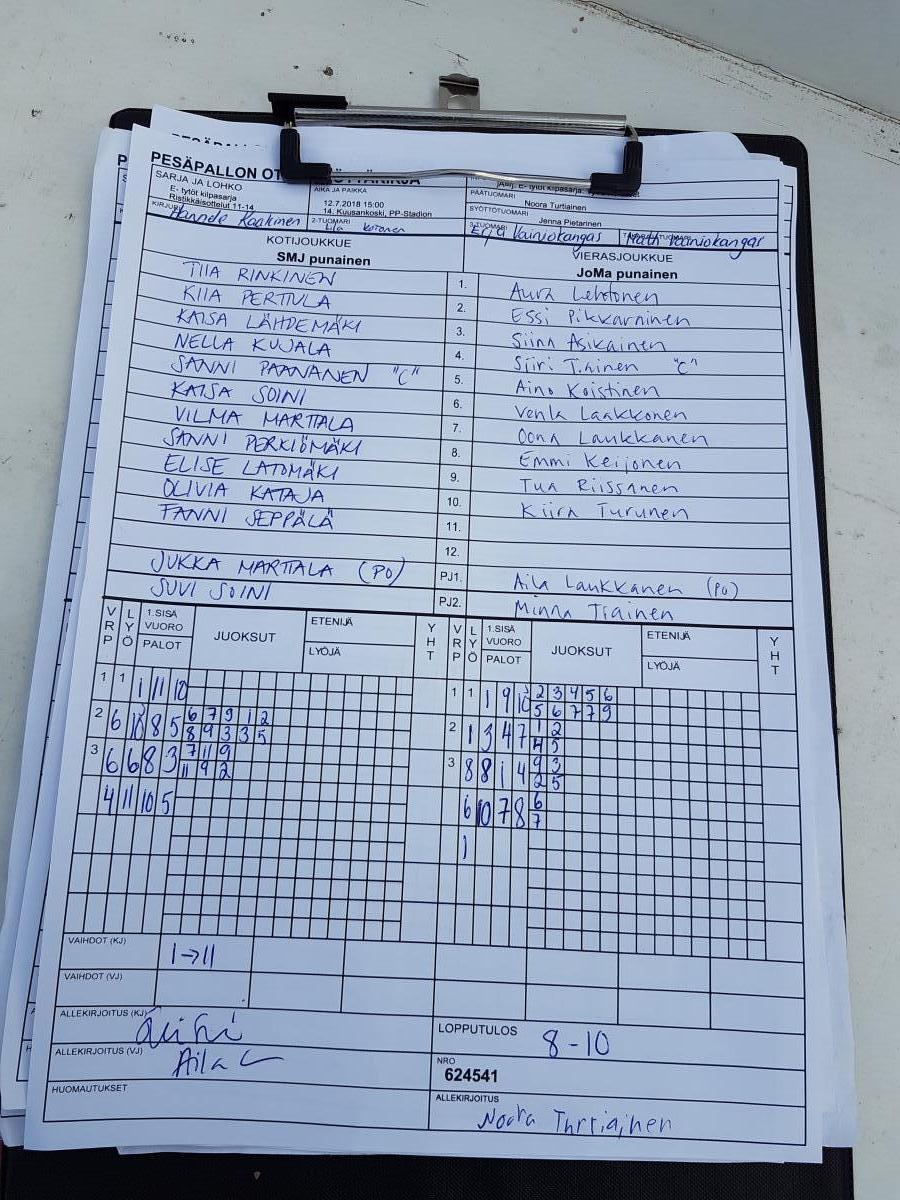 PESÄPALLON OT
SARJA JA LOHKO
E- tytöt kilpasarja
Ristikkäisottelut 11-14
AIKA JA PAIKKA
12.7.2018 15:00
14. Kuusankoski, PP-Stadion
PÄÄTUOMARI
Noora Turtiainen
SYÖTTÖTUOMARI
Jenna Pietarinen
KIRJURI
2-TUOMARI
Erja Vainiokangas
KOTIJOUKKUE
SMJ punainen
VIERASJOUKKUE
JoMa punainen
TIIA RINKINEN 1. Aura Lehtonen
KIIA PERTTULA 2. Essi Pikkarainen
KAISA LÄHDEMÄKI 3. Siina Asikainen
NELLA KUJALA 4. Siiri Tiainen "C"
SANNI PAANANEN "C" 5. Aino Koistinen
KAISA SOINI 6. Venla Laakkonen
VILMA MARTTALA 7. Oona Laukkanen
SANNI PERKIÖMÄKI 8. Emmi Keijonen
ELISE LATOMÄKI 9. Tua Riissanen
OLIVIA KATAJA 10. Kiira Turunen
FANNI SEPPÄLÄ 11.
12.
JUKKA MARTTALA (PO) PJ1. Aila Laukkanen (po)
SUVI SOINI PJ2. Minna Tiainen
VRP LYÖ 1.SISÄ VUORO PALOT JUOKSUT ETENIJÄ LYÖJÄ YHT VRP LYÖ 1.SISÄ VUORO PALOT JUOKSUT ETENIJÄ LYÖJÄ YHT
1 1 1 11 10 1 1 1 9 10 2 3 4 5 6
5 6 7 7 9
2 6 10 8 5 6 7 9 1 2 2 1 3 4 7 1 2
8 9 3 3 5 4 5
3 6 6 8 3 7 11 9 3 8 8 1 4 9 3
11 9 2 2 5
4 11 10 5 6 10 7 8 6
7
1
VAIHDOT (KJ) 1→11
VAIHDOT (VJ)
ALLEKIRJOITUS (KJ)
LOPPUTULOS 8-10
ALLEKIRJOITUS (VJ) Aila
NRO
624541
HUOMAUTUKSET
ALLEKIRJOITUS
Noora Turtiainen